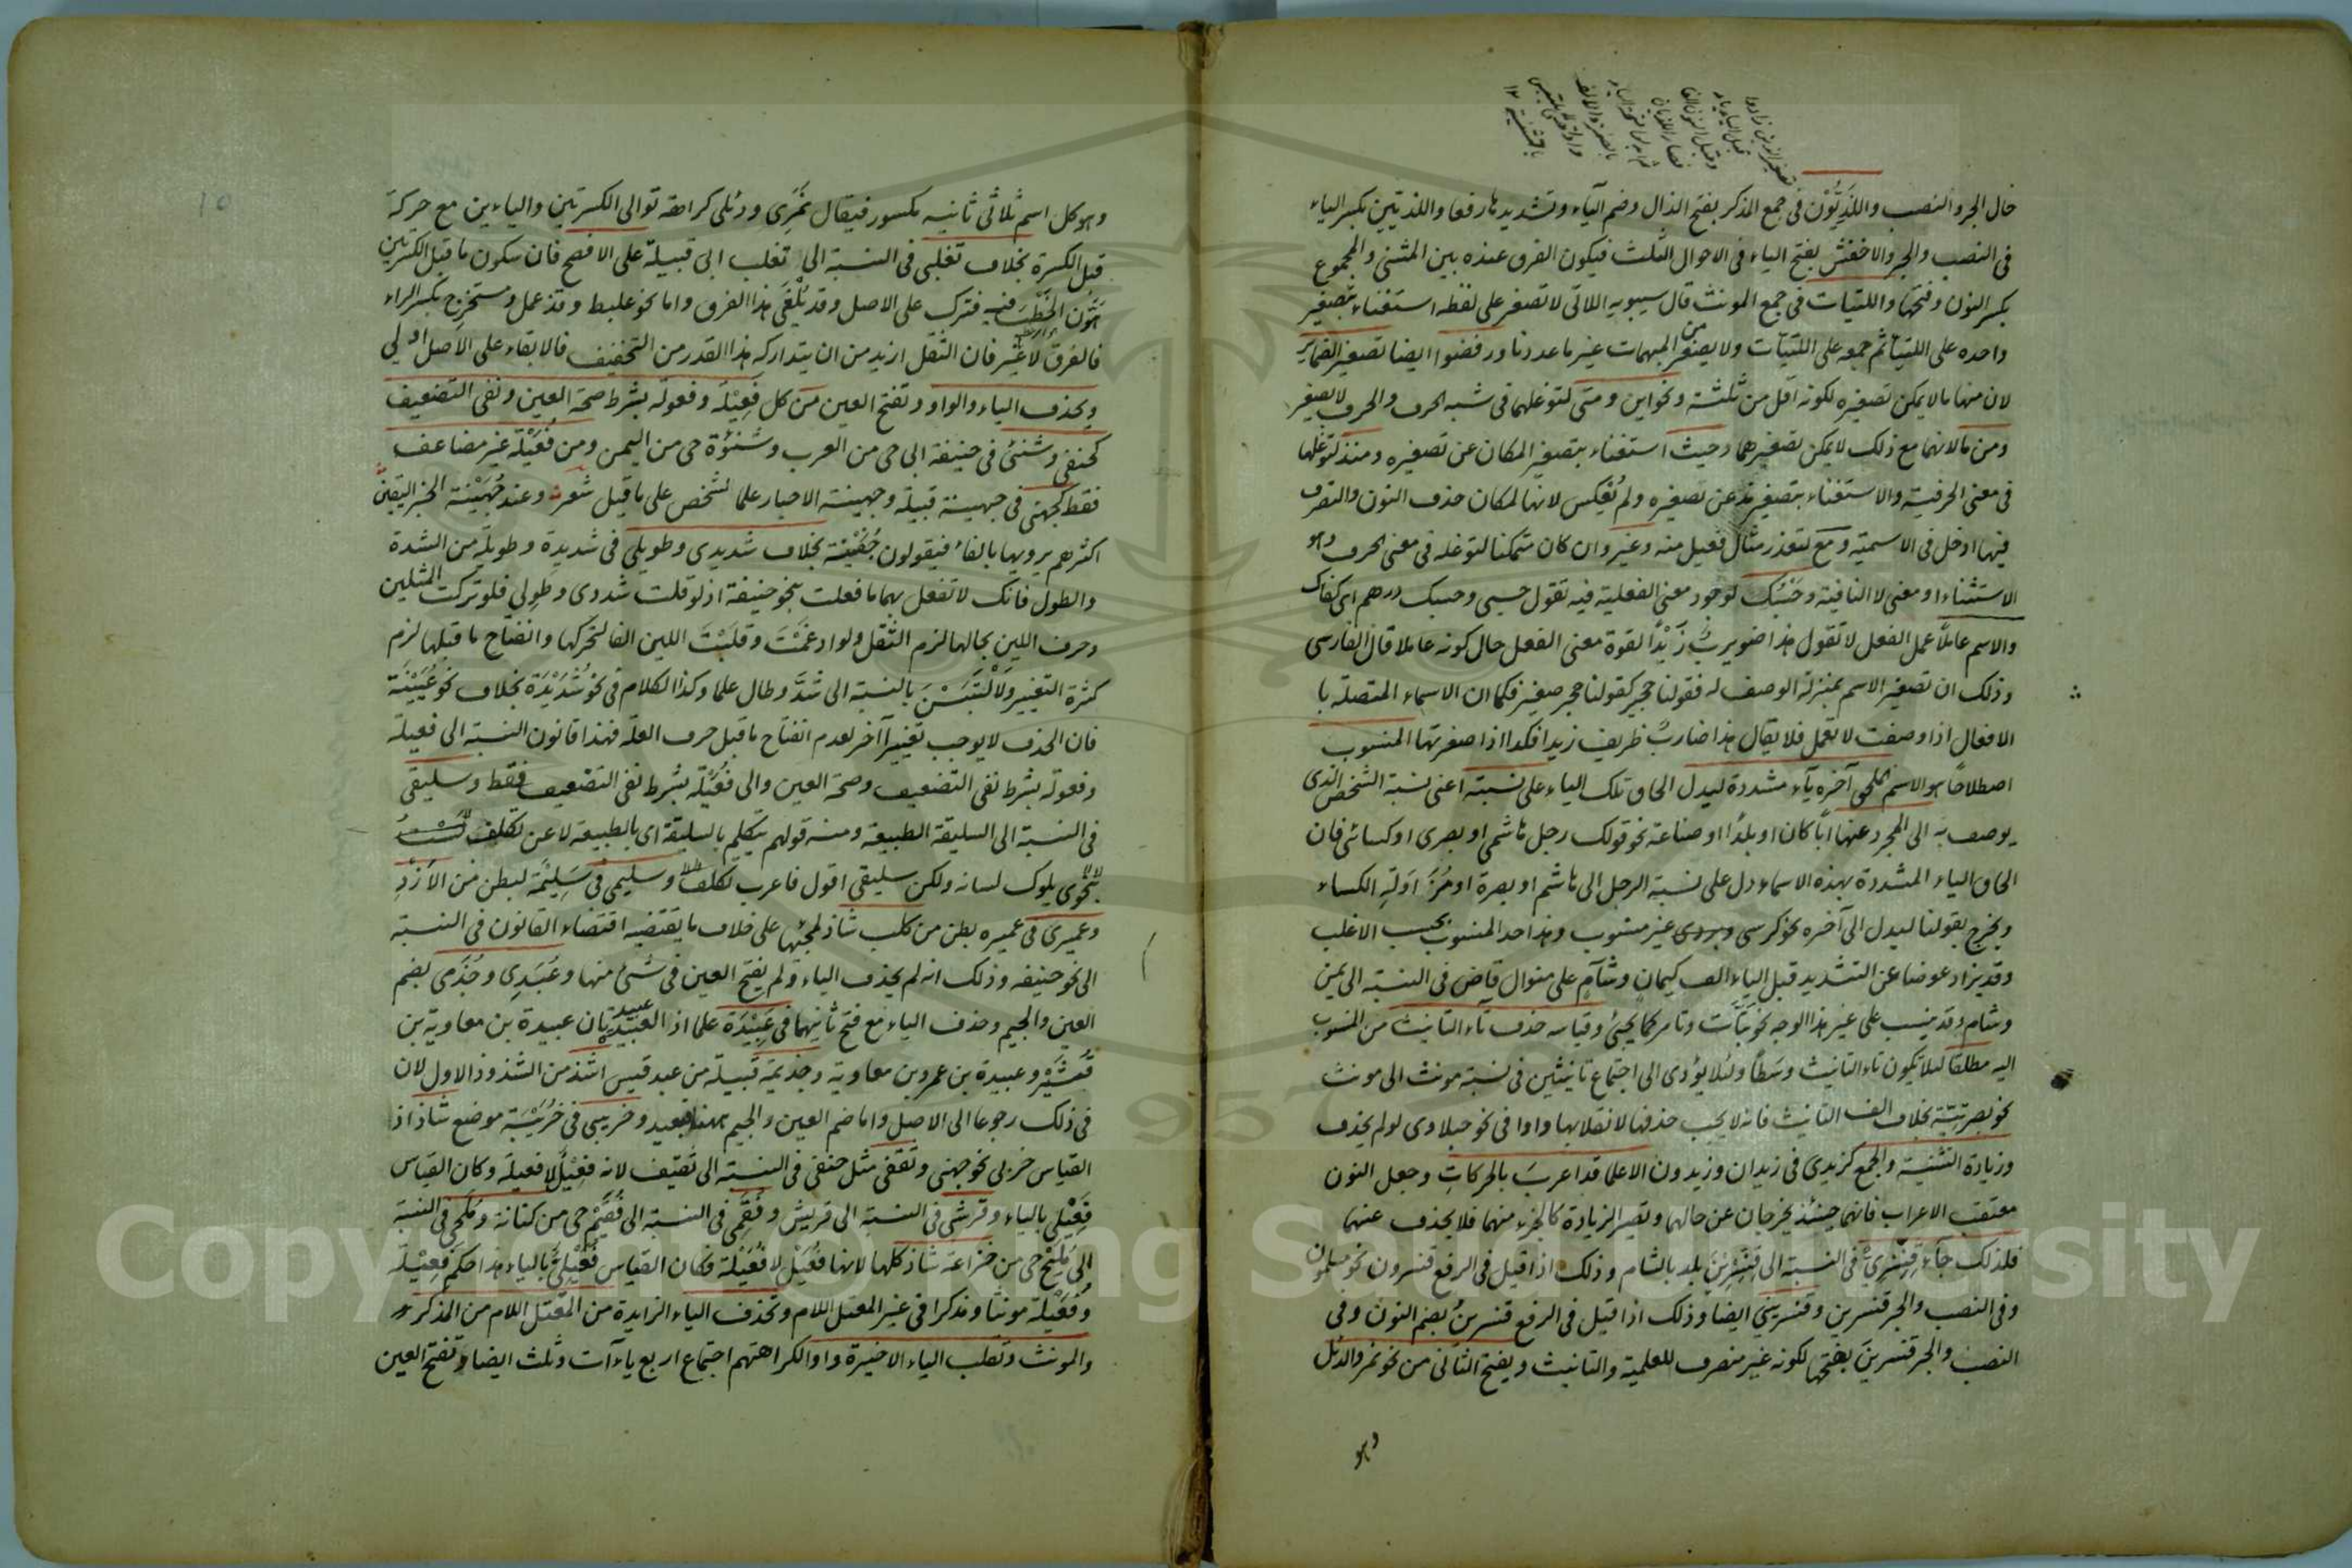 حال الجر والنصب واللذيّون فى جمع المذكر بفتح الذال وضم الياء وتشديدها رفعا واللذيين بكسر الياء
فى النصب والجر والاخفش بفتح الياء فى الاحوال الثلث فيكون الفرق عنده بين المثنى والمجموع
بكسر النون وفتحها واللتيات فى جمع المونث قال سيبويه اللاتى لا تصغر على لفظه استغناء بتصغير
واحده على اللتيا ثم جمعه على اللتيات ولا يصغر من المبهمات غير ما عددنا ورفضوا ايضا تصغير الضماير
لان منها ما لا يمكن تصغيره لكونه اقل من ثلثة ونحو اين ومتى لتوغلهما فى شبه الحرف والحرف لا يصغر
ومن ما لانهما مع ذلك لا يمكن تصغيرهما وحيث استغناء بتصغير المكان عن تصغيره ومنذ لتوغلها
فى معنى الحرفية والاستغناء بتصغير مذ عن تصغيره ولم يعكس لانها لمكان حذف النون والتصرف
فيها ادخل فى الاسمية ومع لتعذر مثال فعيل منه وغير وان كان متمكنا لتوغله فى معنى الحرف وهو
الاستثناء او معنى لا النافية وحسبك لوجود معنى الفعلية فيه تقول حسبى وحسبك درهم اى كفاك
والاسم عاملا عمل الفعل لا تقول هذا ضويرب زيدا لقوة معنى الفعل حال كونه عاملا قال الفارسى
وذلك ان تصغير الاسم بمنزلة الوصف له فقولنا حجير كقولنا حجر صغير فكما ان الاسماء المتصلة با
الافعال اذا وصفت لا تعمل فلا يقال هذا ضارب ظريف زيدا فكذا اذا صغرتها المنسوب
اصطلاحا هو الاسم الملحق آخره ياء مشددة ليدل الحاق تلك الياء على نسبته اعنى نسبة الشخص الذى
يوصف به الى المجرد عنها ابا كان او بلدا او صناعة نحو قولك رجل هاشمى او بصرى او كسائى فان
الحاق الياء المشددة بهذه الاسماء دل على نسبة الرجل الى هاشم او بصرة او مزاولة الكساء
ويخرج بقولنا ليدل الى آخره نحو كرسى وبردى غير منسوب وهذا حد المنسوب بحسب الاغلب
وقد يزاد عوضا عن التشديد قبل الياء الف كيمان وشآم على منوال قاض فى النسبة الى يمن
وشام وقد ينسب على غير هذا الوجه نحو بتات وتامر كما يجئ وقياسه حذف تاء التانيث من المنسوب
اليه مطلقا لئلا يكون تاء التانيث وسطا ولئلا يؤدى الى اجتماع تانيثين فى نسبة مونث الى مونث
نحو بصرتية بخلاف الف التانيث فانه لا يجب حذفها لانقلابها واوا فى نحو حبلاوى لو لم يحذف
وزيادة التثنية والجمع كزيدى فى زيدان وزيدون الا علما قد اعرب بالحركات وجعل النون
معتقب الاعراب فانهما حينئذ يخرجان عن حالهما وتصير الزيادة كالجزء منهما فلا يحذف عنهما
فلذلك جاء قنسرى فى النسبة الى قنسرين بلد بالشام وذلك اذا قيل فى الرفع قنسرون نحو مسلمون
وفى النصب والجر قنسرين وقنسرينى ايضا وذلك اذا قيل فى الرفع قنسرين بضم النون وفى
النصب والجر قنسرين بفتحها لكونه غير منصرف للعلمية والتانيث ويفتح الثانى من نحو نمر والدئل
وهو
وهو كل اسم ثلاثى ثانيه مكسور فيقال نمرى ودئلى كراهة توالى الكسرتين والياءين مع حركة
قبل الكسرة بخلاف تغلبى فى النسبة الى تغلب ابى قبيلة على الافصح فان سكون ما قبل الكسرتين
هون الخطب فيه فترك على الاصل وقد يلغى هذا الفرق واما نحو علبط وقذعمل ومستخرج بكسر الراء
فالفرق لا غير فان الثقل ازيد من ان يتداركه هذا القدر من التخفيف فالابقاء على الاصل اولى
ويحذف الياء والواو وتفتح العين من كل فعيلة وفعولة بشرط صحة العين ونفى التضعيف
كحنفى وشنئى فى حنيفة ابى حى من العرب وشنوءة حى من اليمن ومن فعيلة غير مضاعف
فقط كجهنى فى جهينة قبيلة وجهينة الاخبار علما لشخص على ما قيل شعر وعند جهينة الخبر اليقين
اكثرهم يرويها بالفاء فيقولون جفينة بخلاف شديدى وطويلى فى شديدة وطويلة من الشدة
والطول فانك لا تفعل بهما ما فعلت بنحو حنيفة اذ لو قلت شددى وطولى فلو تركت المثلين
وحرف اللين بحالها لزم الثقل ولو ادغمت وقلبت اللين الفا لتحركها وانفتاح ما قبلها لزم
كثرة التغيير ولالتبسن بالنسبة الى شد وطال علما وكذا الكلام فى نحو شديدة بخلاف نحو عيينة
فان الحذف لا يوجب تغييرا آخر لعدم انفتاح ما قبل حرف العلة فهذا قانون النسبة الى فعيلة
وفعولة بشرط نفى التضعيف وصحة العين والى فعيلة بشرط نفى التضعيف فقط وسليقى
فى النسبة الى السليقة الطبيعة ومنه قولهم يتكلم بالسليقة اى بالطبيعة لا عن تكلف ولست
بنحوى يلوك لسانه ولكن سليقى اقول فاعرب تكلف وسليمى فى سليمة لبطن من الازد
وعميرى فى عميره بطن من كلب شاذ لمجيئها على خلاف ما يقتضيه اقتضاء القانون فى النسبة
الى نحو حنيفه وذلك انه لم يحذف الياء ولم يفتح العين فى شئ منها وعبدى وجذمى بضم
العين والجيم وحذف الياء مع فتح ثانيهما فى عبيدة علما اذ العبيدتان عبيدة بن معاوية بن
قشير وعبيدة بن عمرو بن معاوية وجذيمة قبيلة من عبد قيس اشذ من الشذوذ الاول لان
فى ذلك رجوعا الى الاصل واما ضم العين والجيم ههنا فبعيد وخريبى فى خريبة موضع شاذ اذ
القياس خربى نحو جهنى وثقفى مثل حنفى فى النسبة الى ثقيف لانه فعيل لا فعيلة وكان القياس
فعيلى بالياء وقرشى فى النسبة الى قريش وفقمى فى النسبة الى فقيم حى من كنانة وملحى فى النسبة
الى مليح حى من خزاعة شاذ كلها لانها فعيل لا فعيلة فكان القياس فعيلى بالياء هذا حكم فعيلة
وفعيلة مونثا ومذكرا فى غير المعتل اللام وتحذف الياء الزايدة من المعتل اللام من المذكر
والمونث وتقلب الياء الاخيرة واوا لكراهتهم اجتماع اربع ياءآت وثلث ايضا وتفتح العين